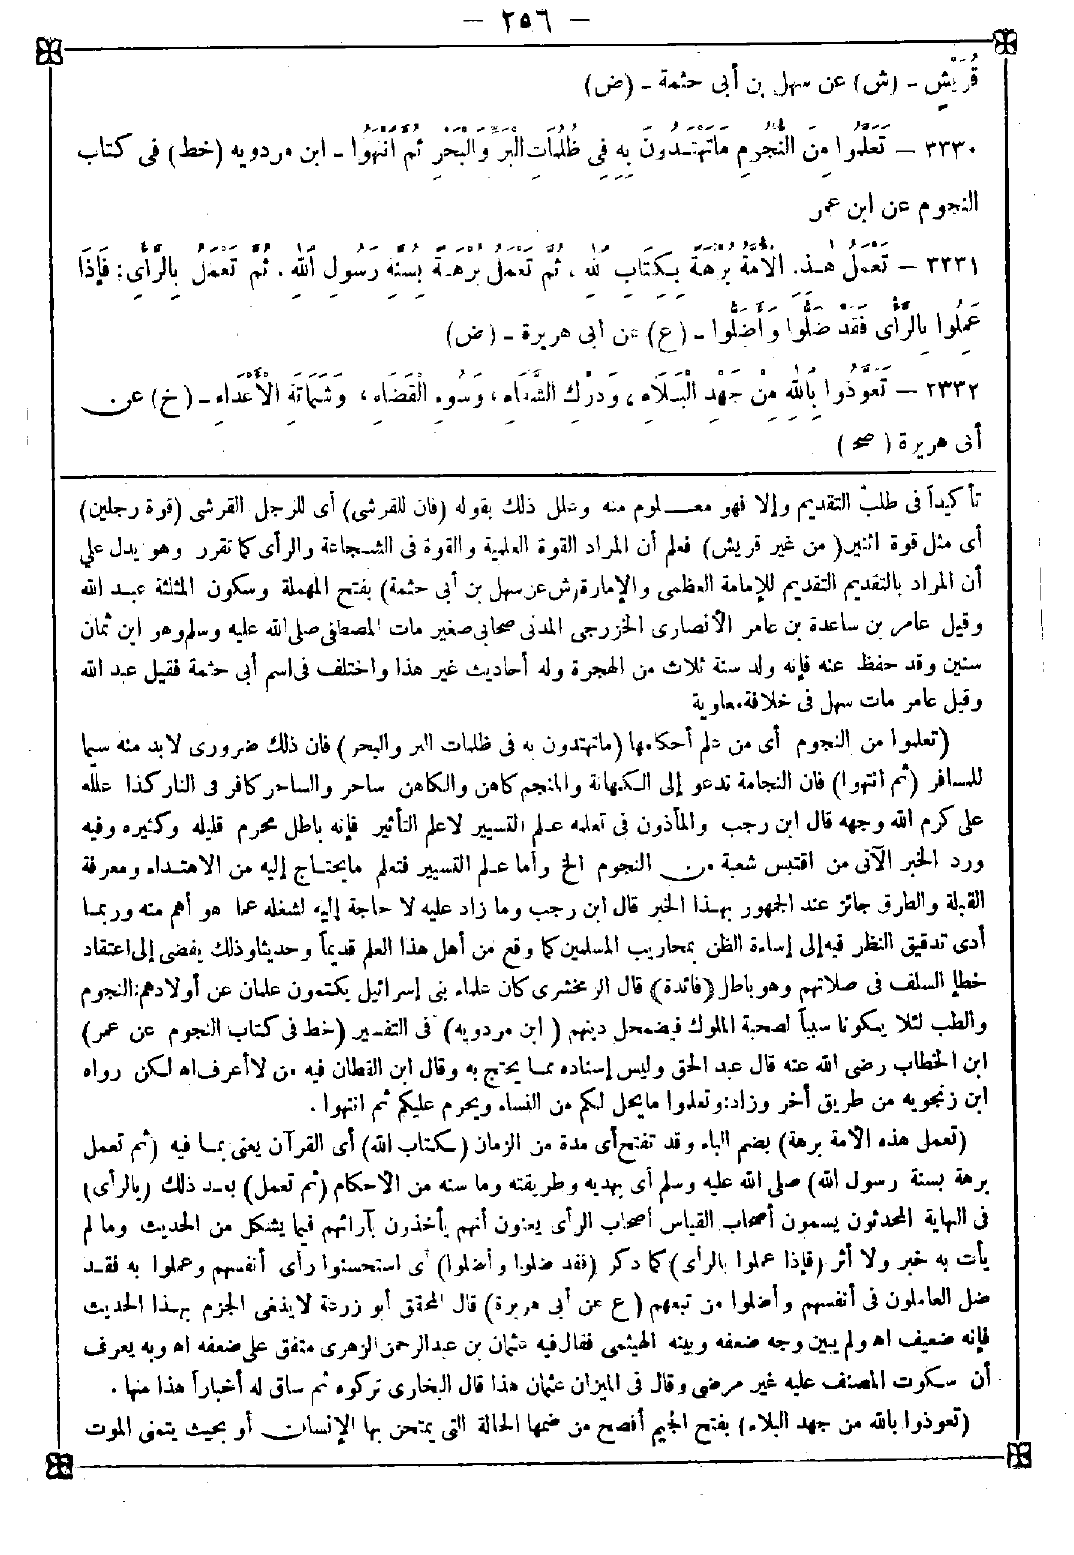 — ٢٥٦ —
قُرَيْشٍ - (ش) عن سهل بن أبى حثمة - (ض)
٣٣٣٠ — تَعَلَّمُوا مِنَ النُّجُومِ مَا تَهْتَدُونَ بِهِ فِى ظُلُمَاتِ الْبَرِّ وَالْبَحْرِ ثُمَّ انْتَهُوا - ابن مردويه (خط) فى كتاب
النجوم عن ابن عمر
٣٣٣١ — تَعْمَلُ هَذِهِ الْأُمَّةُ بُرْهَةً بِكِتَابِ اللهِ ، ثُمَّ تَعْمَلُ بُرْهَةً بِسُنَّةِ رَسُولِ اللهِ ، ثُمَّ تَعْمَلُ بِالرَّأْىِ: فَإِذَا
عَمِلُوا بِالرَّأْىِ فَقَدْ ضَلُّوا وَأَضَلُّوا - (ع) عن أبى هريرة - (ض)
٣٣٣٢ — تَعَوَّذُوا بِاللهِ مِنْ جَهْدِ الْبَلَاءِ ، وَدَرْكِ الشَّقَاءِ ، وَسُوءِ الْقَضَاءِ ، وَشَمَاتَةِ الْأَعْدَاءِ - (خ) عن
أبى هريرة (صح)
تأكيداً فى طلب التقديم وإلا فهو معلوم منه وعلل ذلك بقوله (فان للقرشى) أى للرجل القرشى (قوة رجلين)
أى مثل قوة اثنين (من غير قريش) فعلم أن المراد القوة العلمية والقوة فى الشجاعة والرأى كما تقرر وهو يدل على
أن المراد بالتقديم التقديم للإمامة العظمى والإمارة (ش عن سهل بن أبى حثمة) بفتح المهملة وسكون المثلثة عبد الله
وقيل عامر بن ساعدة بن عامر الأنصارى الخزرجى المدنى صحابى صغير مات المصطفى صلى الله عليه وسلم وهو ابن ثمان
سنين وقد حفظ عنه فإنه ولد سنة ثلاث من الهجرة وله أحاديث غير هذا واختلف فى اسم أبى حثمة فقيل عبد الله
وقيل عامر مات سهل فى خلافة معاوية
(تعلموا من النجوم أى من علم أحكامها (ما تهتدون به فى ظلمات البر والبحر) فان ذلك ضرورى لابد منه سيما
للمسافر (ثم انتهوا) فان النجامة تدعو إلى الكهانة والمنجم كاهن والكاهن ساحر والساحر كافر فى النار كذا علله
على كرم الله وجهه قال ابن رجب والمأذون فى تعلمه علم التسيير لاعلم التأثير فإنه باطل محرم قليله وكثيره وفيه
ورد الخبر الآتى من اقتبس شعبة من النجوم الخ وأما علم التسيير فتعلم مايحتاج إليه من الاهتداء ومعرفة
القبلة والطرق جائز عند الجمهور بهذا الخبر قال ابن رجب وما زاد عليه لا حاجة إليه لشغله عما هو أهم منه وربما
أدى تدقيق النظر فيه إلى إساءة الظن بمحاريب المسلمين كما وقع من أهل هذا العلم قديماً وحديثا وذلك يفضى إلى اعتقاد
خطإ السلف فى صلاتهم وهو باطل (فائدة) قال الزمخشرى كان علماء بنى إسرائيل يكتمون علمان عن أولادهم: النجوم
والطب لئلا يكونا سبباً لصحبة الملوك فيضمحل دينهم (ابن مردويه) فى التفسير (خط فى كتاب النجوم عن عمر)
ابن الخطاب رضى الله عنه قال عبد الحق وليس إسناده مما يحتج به وقال ابن القطان فيه من لاأعرف اه لكن رواه
ابن زنجويه من طريق أخر وزاد: وتعلموا ما يحل لكم من النساء ويحرم عليكم ثم انتهوا .
(تعمل هذه الأمة برهة) بضم الباء وقد تفتح أى مدة من الزمان (بكتاب الله) أى القرآن يعنى بما فيه (ثم تعمل
برهة بسنة رسول الله) صلى الله عليه وسلم أى بهديه وطريقته وما سنه من الاحكام (ثم تعمل) بعد ذلك (بالرأى)
فى النهاية المحدثون يسمون أصحاب القياس أصحاب الرأى يعنون أنهم يأخذون بآرائهم فيما يشكل من الحديث وما لم
يأت به خبر ولا أثر (فإذا عملوا بالرأى) كما ذكر (فقد ضلوا وأضلوا) أى استحسنوا رأى أنفسهم وعملوا به فقد
ضل العاملون فى أنفسهم وأضلوا من تبعهم (ع عن أبى هريرة) قال المحقق أبو زرعة لا ينبغى الجزم بهذا الحديث
فإنه ضعيف اه ولم يبين وجه ضعفه وبينه الهيثمى فقال فيه عثمان بن عبدالرحمن الزهرى متفق على ضعفه اه وبه يعرف
أن سكوت المصنف عليه غير مرضى وقال فى الميزان عثمان هذا قال البخارى تركوه ثم ساق له أخباراً هذا منها .
(تعوذوا بالله من جهد البلاء) بفتح الجيم أفصح من ضمها الحالة التى يمتحن بها الإنسان أو بحيث يتمنى الموت